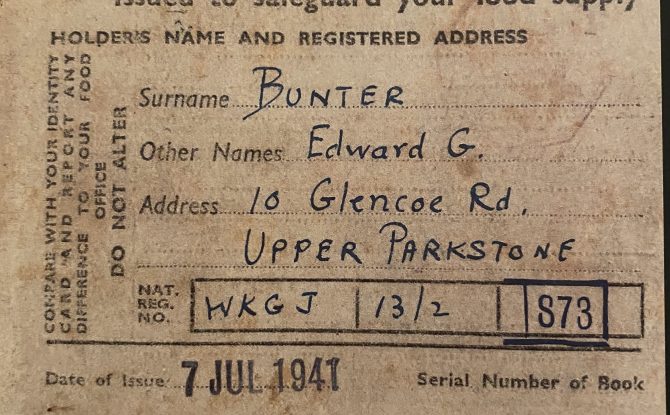 Issued to safeguard your food supply
HOLDER'S NAME AND REGISTERED ADDRESS
COMPARE WITH YOUR IDENTITY
CARD AND REPORT ANY
DIFFERENCE TO YOUR FOOD
OFFICE
DO NOT ALTER
Surname BUNTER
Other Names Edward G.
Address 10 Glencoe Rd.
UPPER PARKSTONE
NAT.
REG.
NO.
WKGJ 13/2 S73
Date of Issue 7 JUL 1941 Serial Number of Book